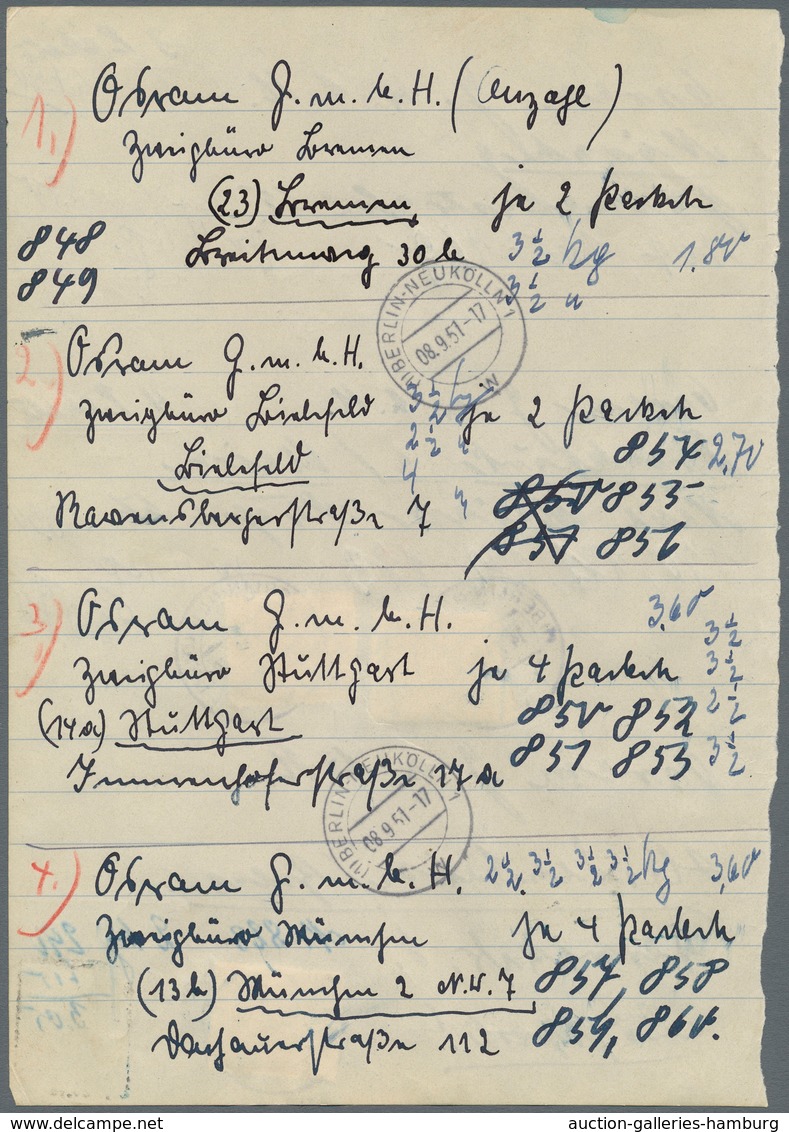 1.) Osram G.m.b.H. (Anzahl)
Zweigbüro Bremen
(23) Bremen je 2 Packete
848 Breitenweg 30 b 3½ kg 1.80
849 3½ "
(1) BERLIN-NEUKÖLLN 1
08.9.51-17
w
2.) Osram G.m.b.H.
Zweigbüro Bielefeld je 2 Packete
2½ "
Bielefeld 4 854 2,70
Ravensbergerstraße 7 850 855
851 856
3.) Osram G.m.b.H. 3,60
3½
Zweigbüro Stuttgart je 4 Packete 3½
(14a) Stuttgart 850 852 2½
Immenhoferstraße 17a 851 853 3½
(1) BERLIN-NEUKÖLLN 1
08.9.51-17
w
4.) Osram G.m.b.H. 2½. 3½ 3½ 3½ kg 3,60
Zweigbüro München je 4 Packete
(13b) München 2 N.W. 7 857, 858
Dachauerstraße 112 859, 860.
auction-galleries-hamburg